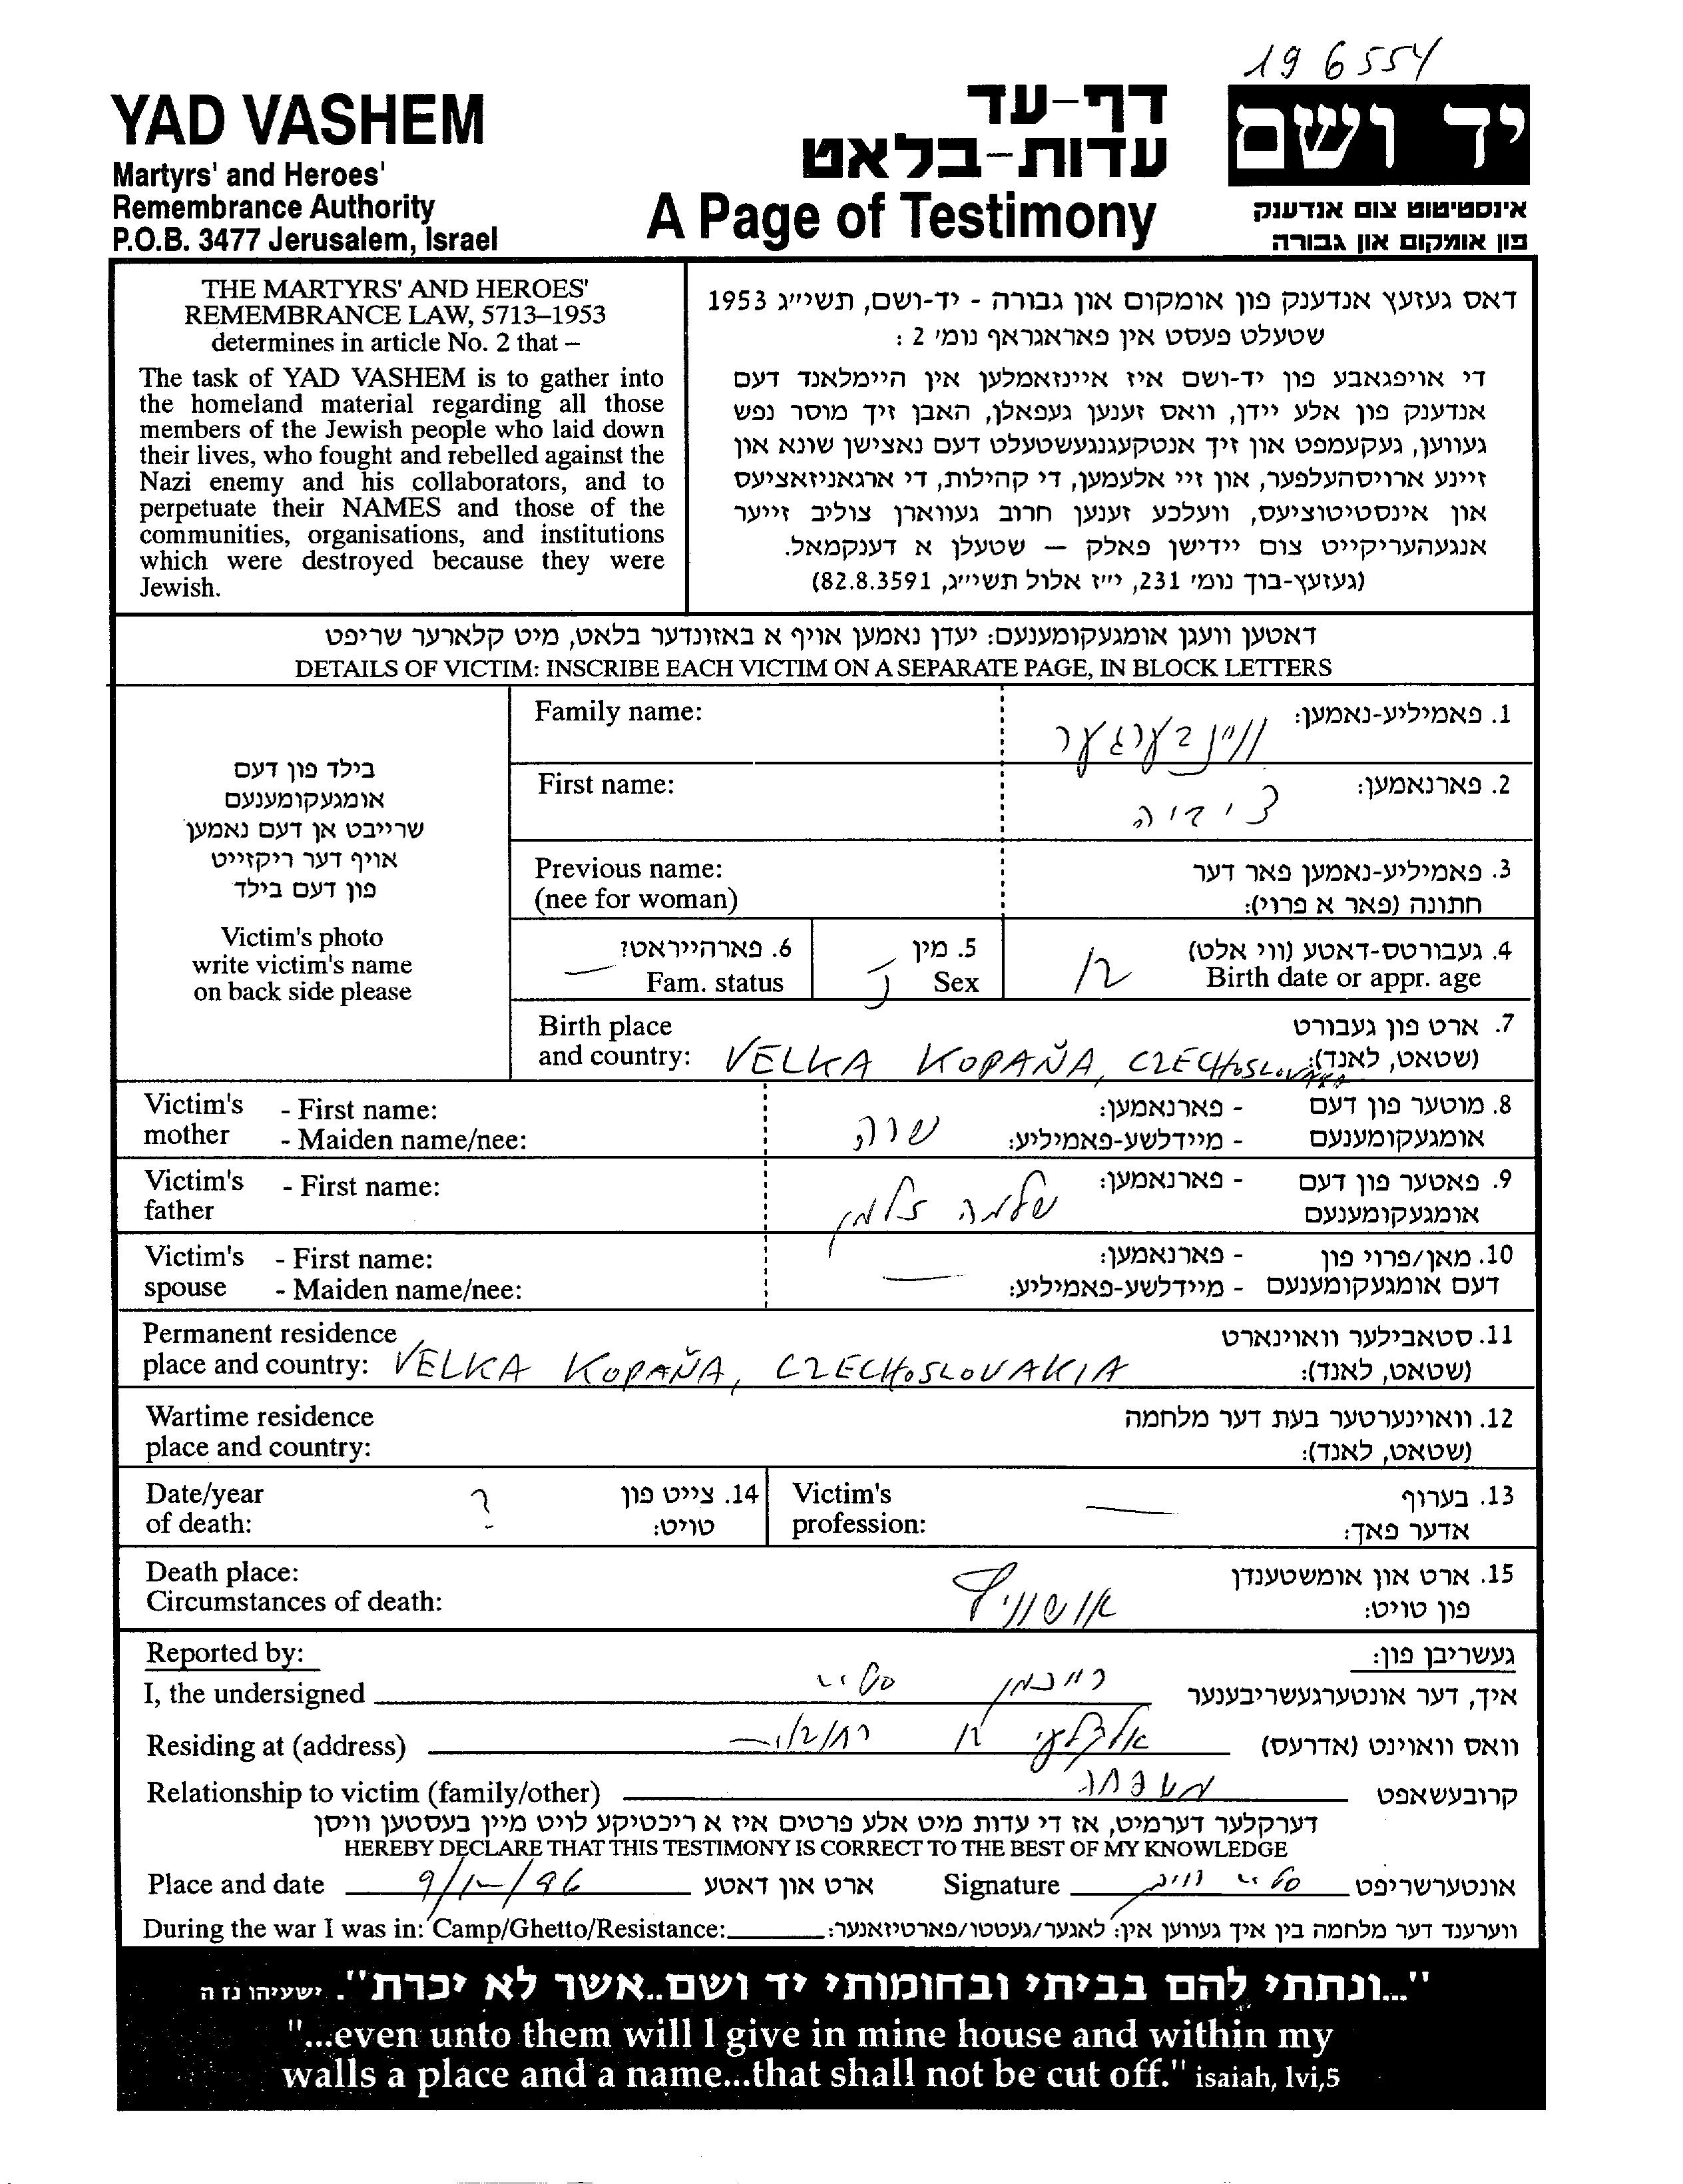 196554
YAD VASHEM
Martyrs' and Heroes'
Remembrance Authority
P.O.B. 3477 Jerusalem, Israel
דף-עד
עדות-בלאט
A Page of Testimony
יד ושם
אינסטיטוט צום אנדענק
פון אומקום און גבורה
THE MARTYRS' AND HEROES'
REMEMBRANCE LAW, 5713–1953
determines in article No. 2 that –
The task of YAD VASHEM is to gather into
the homeland material regarding all those
members of the Jewish people who laid down
their lives, who fought and rebelled against the
Nazi enemy and his collaborators, and to
perpetuate their NAMES and those of the
communities, organisations, and institutions
which were destroyed because they were
Jewish.
דאס געזעץ אנדענק פון אומקום און גבורה - יד-ושם, תשי״ג 1953
שטעלט פעסט אין פאראגראף נומ׳ 2 :
די אויפגאבע פון יד-ושם איז איינזאמלען אין היימלאנד דעם
אנדענק פון אלע יידן, וואס זענען געפאלן, האבן זיך מוסר נפש
געווען, געקעמפט און זיך אנטקעגנגעשטעלט דעם נאצישן שונא און
זיינע ארויסהעלפער, און זיי אלעמען, די קהילות, די ארגאניזאציעס
און אינסטיטוציעס, וועלכע זענען חרוב געווארן צוליב זייער
אנגעהעריקייט צום יידישן פאלק — שטעלן א דענקמאל.
(געזעץ-בוך נומ׳ 231, י״ז אלול תשי״ג, 82.8.3591)
דאטען וועגן אומגעקומענעם: יעדן נאמען אויף א באזונדער בלאט, מיט קלארער שריפט
DETAILS OF VICTIM: INSCRIBE EACH VICTIM ON A SEPARATE PAGE, IN BLOCK LETTERS
בילד פון דעם
אומגעקומענעם
שרייבט אן דעם נאמען
אויף דער ריקזייט
פון דעם בילד
Victim's photo
write victim's name
on back side please
Family name: ויינבערגער 1. פאמיליע-נאמען:
First name: צידיה 2. פארנאמען:
Previous name: 3. פאמיליע-נאמען פאר דער
(nee for woman) חתונה (פאר א פרוי):
6. פארהייראט? — 5. מין נ 4. געבורטס-דאטע (ווי אלט)
Fam. status Sex 12 Birth date or appr. age
Birth place 7. ארט פון געבורט
and country: VELKA KOPAŇA, CZECHOSLOVAKIA (שטאט, לאנד):
Victim's - First name: שרה - פארנאמען: 8. מוטער פון דעם
mother - Maiden name/nee: - מיידלשע-פאמיליע: אומגעקומענעם
Victim's - First name: שלמה זלמן - פארנאמען: 9. פאטער פון דעם
father אומגעקומענעם
Victim's - First name: — - פארנאמען: 10. מאן/פרוי פון
spouse - Maiden name/nee: - מיידלשע-פאמיליע: דעם אומגעקומענעם
Permanent residence 11. סטאבילער וואוינארט
place and country: VELKA KOPAŇA, CZECHOSLOVAKIA (שטאט, לאנד):
Wartime residence 12. וואוינערטער בעת דער מלחמה
place and country: (שטאט, לאנד):
Date/year ? 14. צייט פון
of death: טויט:
Victim's — 13. בערוף
profession: אדער פאך:
Death place: אושוויץ 15. ארט און אומשטענדן
Circumstances of death: פון טויט:
Reported by: געשריבן פון:
I, the undersigned רייכמן סטיי איך, דער אונטערגעשריבענער
Residing at (address) 12 וואס וואוינט (אדרעס)
Relationship to victim (family/other) משפחה קרובעשאפט
דערקלער דערמיט, אז די עדות מיט אלע פרטים איז א ריכטיקע לויט מיין בעסטען וויסן
HEREBY DECLARE THAT THIS TESTIMONY IS CORRECT TO THE BEST OF MY KNOWLEDGE
Place and date 9/12/96 ארט און דאטע Signature אונטערשריפט
During the war I was in: Camp/Ghetto/Resistance: ווערענד דער מלחמה בין איך געווען אין: לאגער/געטטו/פארטיזאנער:
"...ונתתי להם בביתי ובחומותי יד ושם..אשר לא יכרת". ישעיהו נז ה
"...even unto them will I give in mine house and within my
walls a place and a name...that shall not be cut off." isaiah, lvi,5